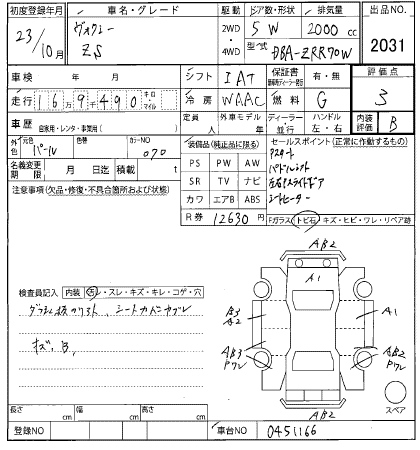 初度登録年月 車名・グレード 駆動 ドア数・形状 排気量 出品NO.
23/10月 ヴォクシー ZS 2WD・4WD 5 W 2000 cc 2031
型式 DBA-ZRR70W
車検 年 月 シフト IAT 保証書 有・無 評価点
走行 169千490 キロ・マイル 冷房 WAAC 燃料 G 3
車歴 自家用・レンタ・事業用( ) 定員 人 外車モデル 年 ディーラー・並行 ハンドル 左・右 内装評価 B
外色 元色 パール 色替 カラーNO 070
名義変更期限 月 日迄 積載 t
装備品(純正品に限る)
PS PW AW
SR TV ナビ
カワ エアB ABS
R券 12630 円
セールスポイント(正常に作動するもの)
パドルシフト
左右スライドドア
シートヒーター
注意事項(欠品・修復・不具合箇所および状態)
Fガラス トビ石・キズ・ヒビ・ワレ・リペア跡
検査員記入 内装 汚レ・スレ・キズ・キレ・コゲ・穴
キズ、B、
AB2
A1
B3
A2
A1
AB3
Pワレ
AB2
Pワレ
AB2
スペア
長さ cm 幅 cm 高さ cm
登録NO 車台NO 0451166